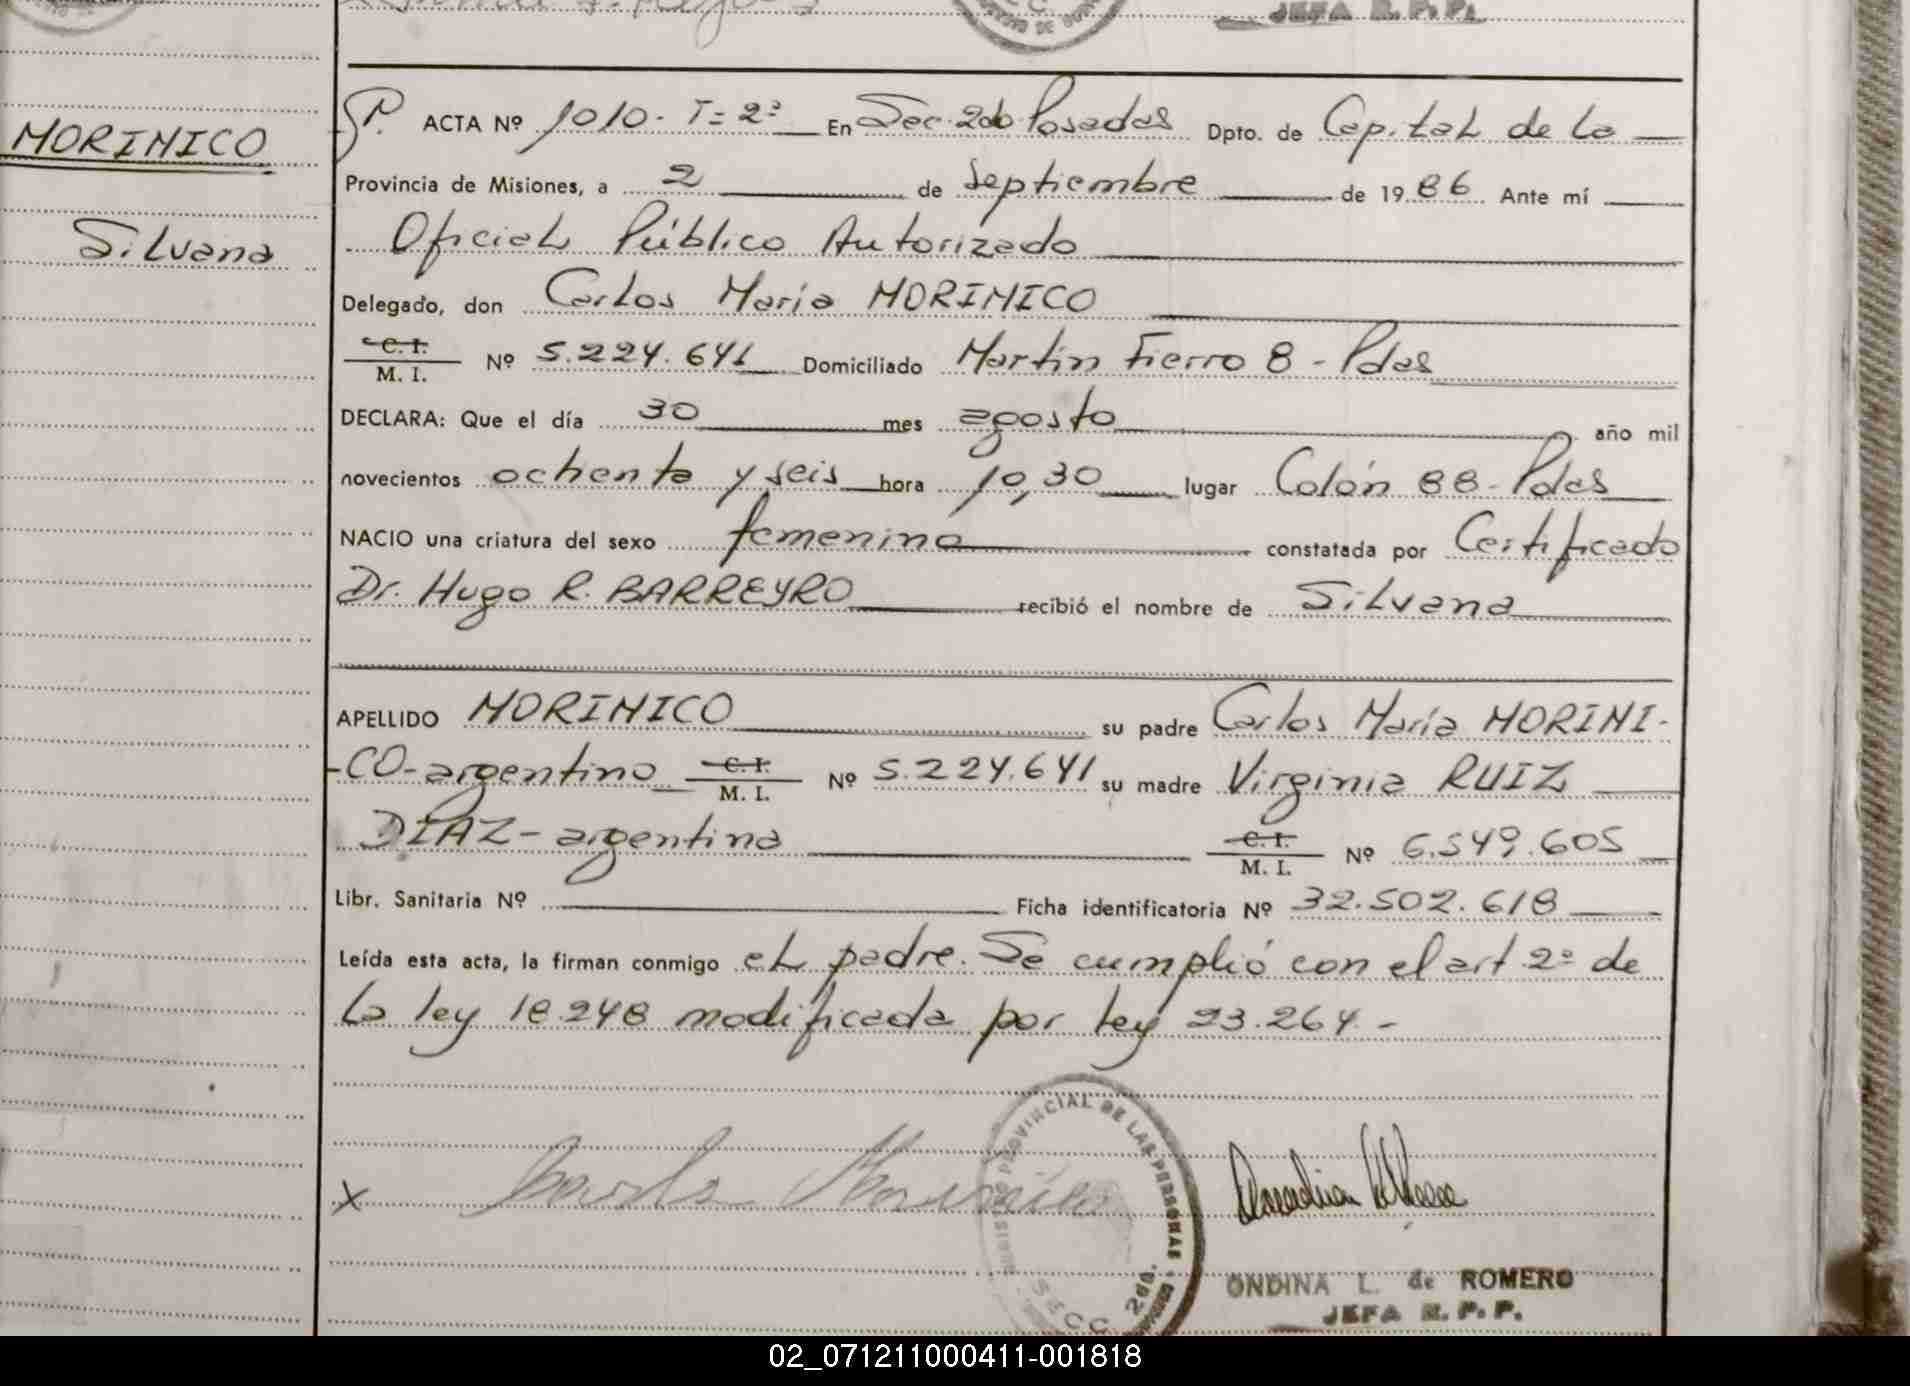 JEFA R. P. P.
MORINICO
Silvana
ACTA Nº 1010 - T= 2º En Sec. 2do Posadas Dpto. de Capital de la
Provincia de Misiones, a 2 de septiembre de 1986 Ante mí
Oficial Público Autorizado
Delegado, don Carlos María MORINICO
C. I.
M. I. Nº 5.224.641 Domiciliado Martín Fierro 8 - Pdas
DECLARA: Que el día 30 mes agosto año mil
novecientos ochenta y seis hora 10,30 lugar Colón 88 - Pdas
NACIO una criatura del sexo femenino constatada por Certificado
Dr. Hugo R. BARREYRO recibió el nombre de Silvana
APELLIDO MORINICO su padre Carlos María MORINI-
-CO - argentino C. I. M. I. Nº 5.224.641 su madre Virginia RUIZ
DIAZ - argentina C. I. M. I. Nº 6.549.605
Libr. Sanitaria Nº Ficha identificatoria Nº 32.502.618
Leída esta acta, la firman conmigo el padre. Se cumplió con el art 2º de
la ley 18.248 modificada por ley 23.264 -
PROVINCIAL DE LAS PERSONAS
SECC. 2da.
X Carlos Morinico
ONDINA L. de ROMERO
JEFA R. P. P.
02_071211000411-001818